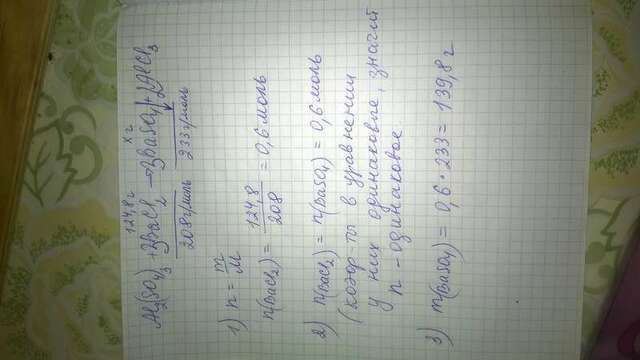 124,8г x г
Al₂(SO₄)₃ + 3BaCl₂ → 3BaSO₄↓ + 2AlCl₃
208г/моль 233г/моль
1) n = m/M
n(BaCl₂) = 124,8/208 = 0,6 моль
2) n(BaCl₂) = n(BaSO₄) = 0,6 моль
(коэф-ты в уравнении
у них одинаковые, значит
n - одинаковое
3) m(BaSO₄) = 0,6 · 233 = 139,8 г